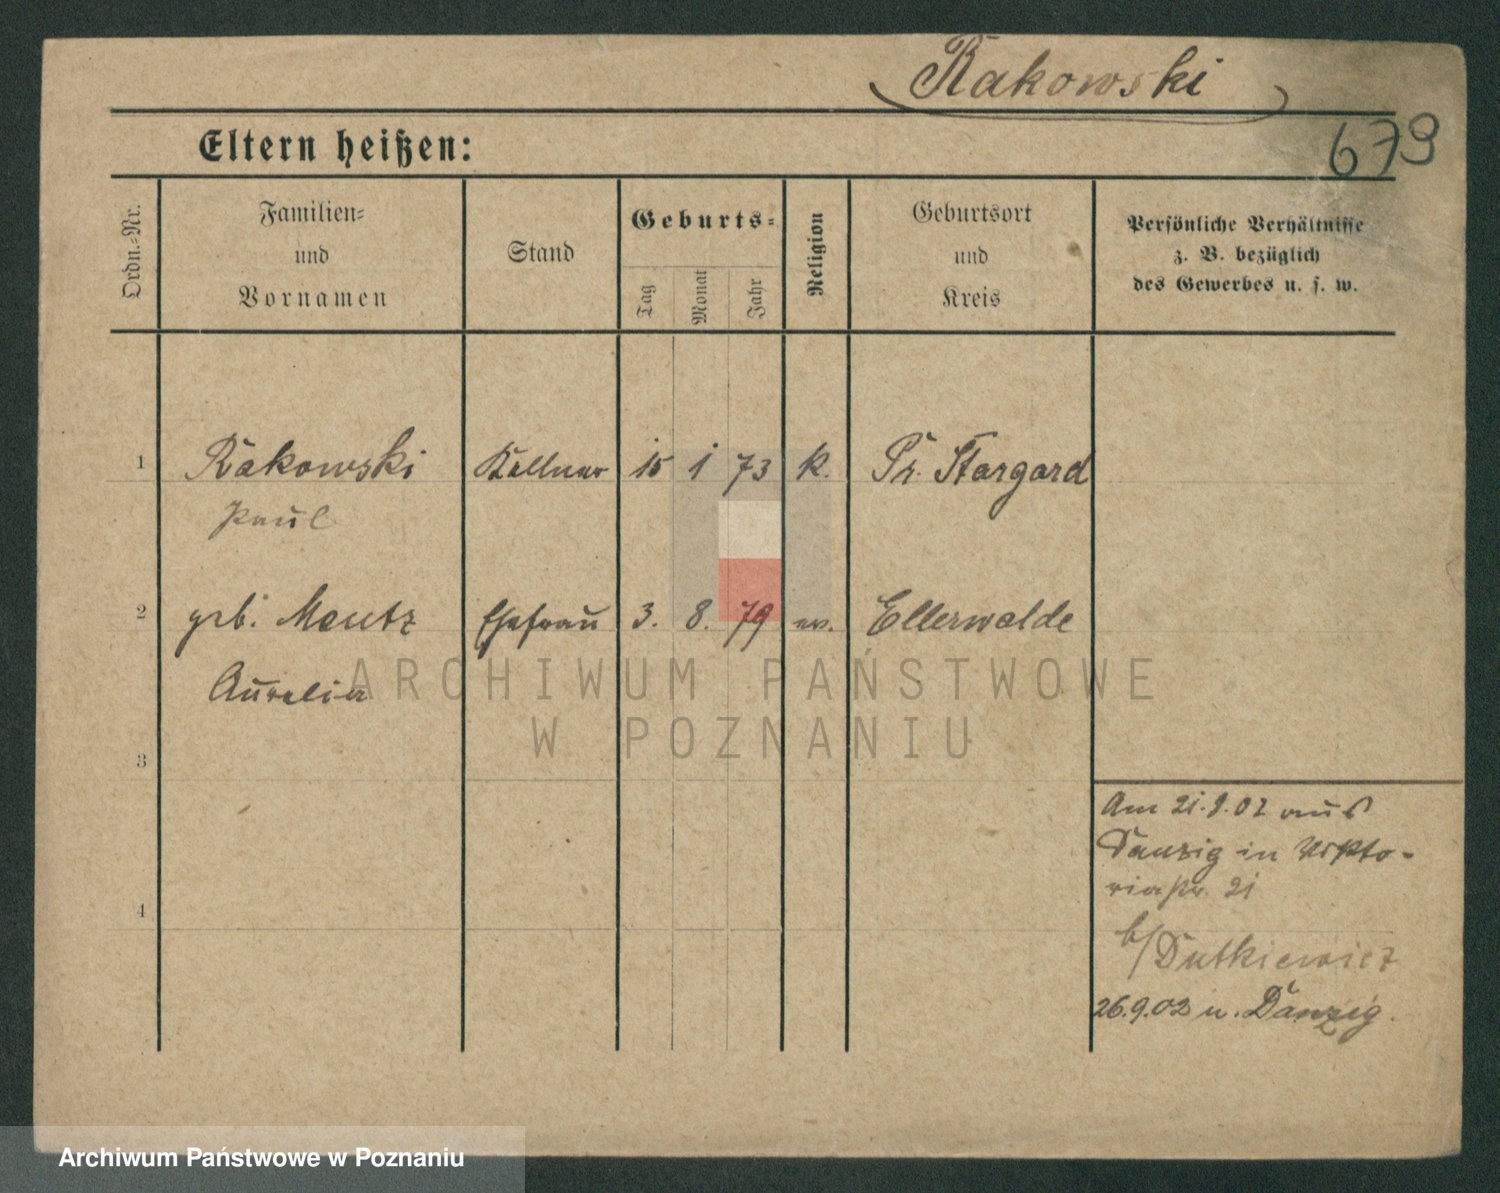 Rakowski
679
Eltern heißen:
Ordn.=Nr.
Familien=
und
Vornamen
Stand
Geburts=
Tag
Monat
Jahr
Religion
Geburtsort
und
Kreis
Persönliche Verhältnisse
z. B. bezüglich
des Gewerbes u. s. w.
1 Rakowski Kellner 15 1 73 k. Pr. Stargard
Paul
2 geb. Mentz Ehefrau 3. 8. 79 ev. Ellerwalde
Aurelia
3
4
Am 21.9.02 aus
Danzig in Vikto-
riastr. 21
b/Dutkiewicz
26.9.02 n. Danzig.
ARCHIWUM PAŃSTWOWE
W POZNANIU
Archiwum Państwowe w Poznaniu